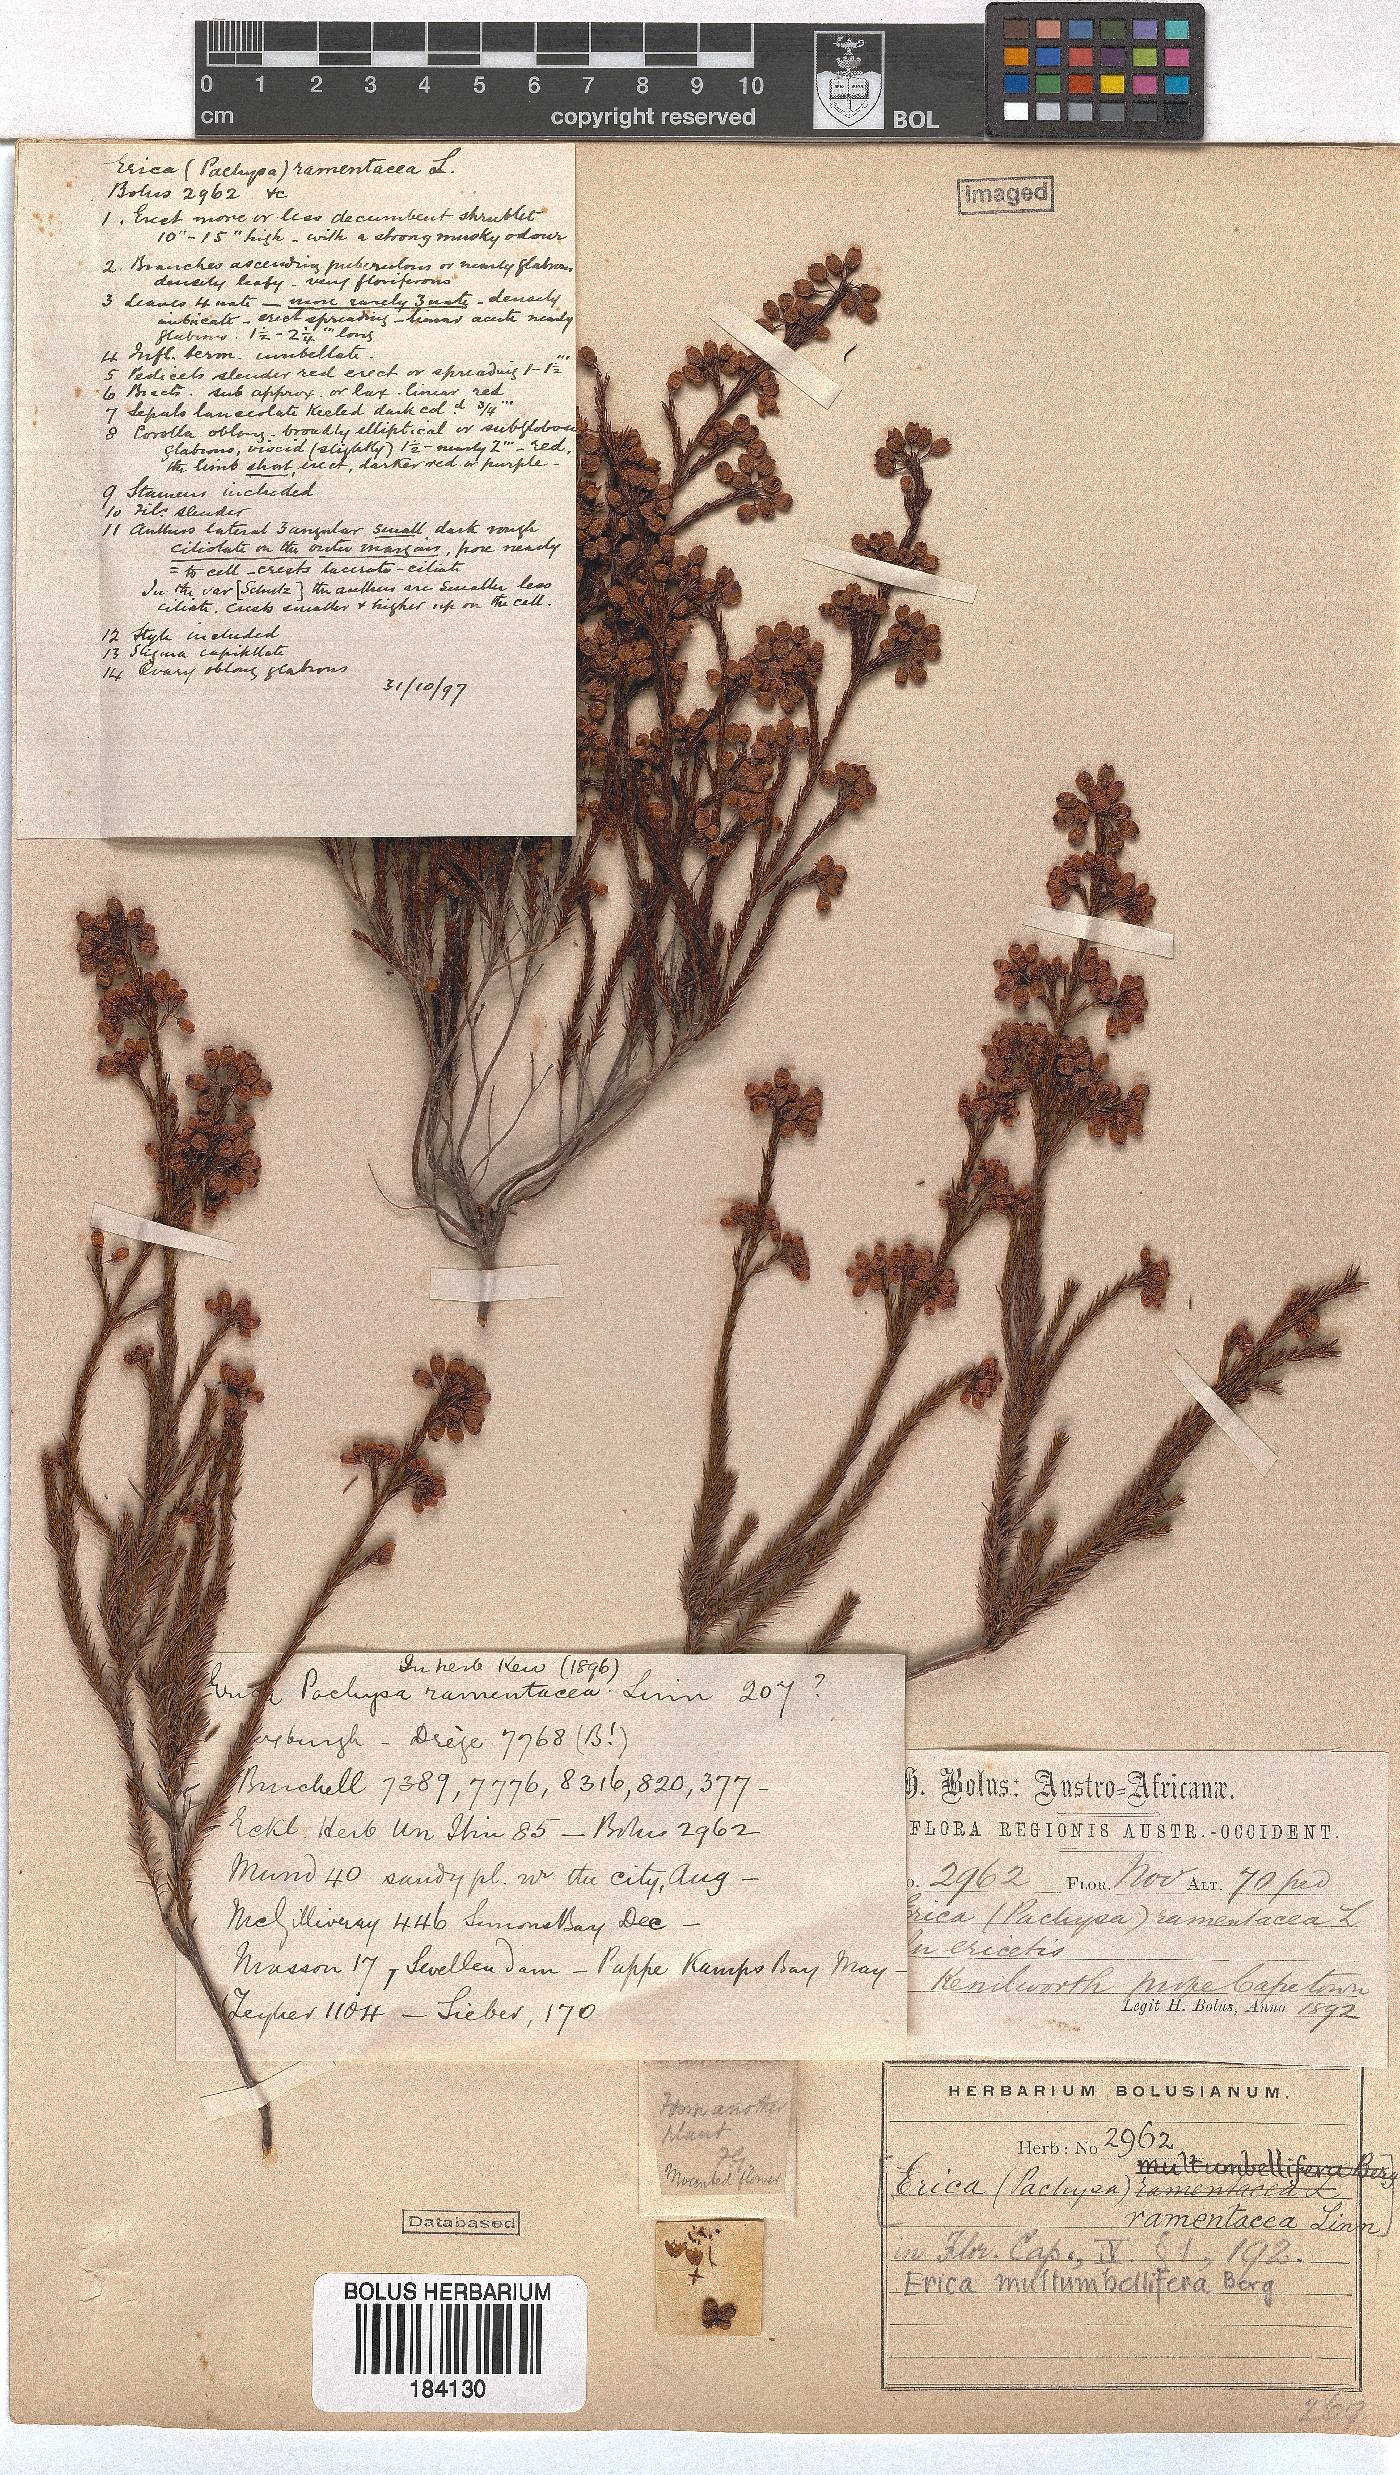 0 1 2 3 4 5 6 7 8 9 10
cm
copyright reserved
BOL
Imaged
Erica (Pachysa) ramentacea L.
Bolus 2962 &c
1. Erect more or less decumbent shrublet
10"-15" high - with a strong musky odour
2. Branches ascending puberulous or nearly glabrous
densely leafy - very floriferous
3 Leaves 4 nate - more rarely 3 nate - densely
imbricate - erect spreading - linear acute nearly
glabrous. 1½ - 2¼''' long
4 Infl. term. umbellate.
5 Pedicels slender red erect or spreading 1-1½'''
6 Bracts. sub approx. or lax. linear red
7 Sepals lanceolate keeled dark col.d 3/4'''
8 Corolla oblong - broadly elliptical or subglobose
glabrous, viscid (slightly) 1½ - nearly 2''' - red,
the limb short, erect, darker red or purple -
9 Stamens included
10 Fil: slender
11 Anthers lateral 3 angular small, dark rough
ciliolate on the outer margins, pore nearly
= to cell - crests lacerate-ciliate
In the var [Schultz] the anthers are smaller less
ciliate. Crests smaller & higher up on the cell.
12 Style included
13 Stigma capitellate
14 Ovary oblong glabrous
31/10/97
In herb Kew (1896)
Erica Pachysa ramentacea. Linn 207?
oxburgh - Drège 7768 (B!)
Burchell 7389, 7776, 8316, 820, 377 -
Eckl. Herb Un Itin 85 - Bolus 2962
Mund 40 sandy pl. nr the city, Aug -
McGillivray 446 Simons Bay Dec -
Masson 17, Swellendam - Pappe Kamps Bay May -
Zeyher 1104 - Sieber, 170
H. Bolus: Austro=Africanæ.
FLORA REGIONIS AUSTR.-OCCIDENT.
o. 2962 FLOR. Nov ALT. 70 ped
Erica (Pachysa) ramentacea L
In ericetis
Kenilworth prope Capetown
Legit H. Bolus, Anno 1892
From another
plant
Mounted flower
HERBARIUM BOLUSIANUM.
Herb: No 2962
multumbellifera Berg
[Erica (Pachysa) ramentacea L
ramentacea Linn]
in Flor. Cap., IV. §1, 192.
Erica multumbellifera Berg
Databased
BOLUS HERBARIUM
184130